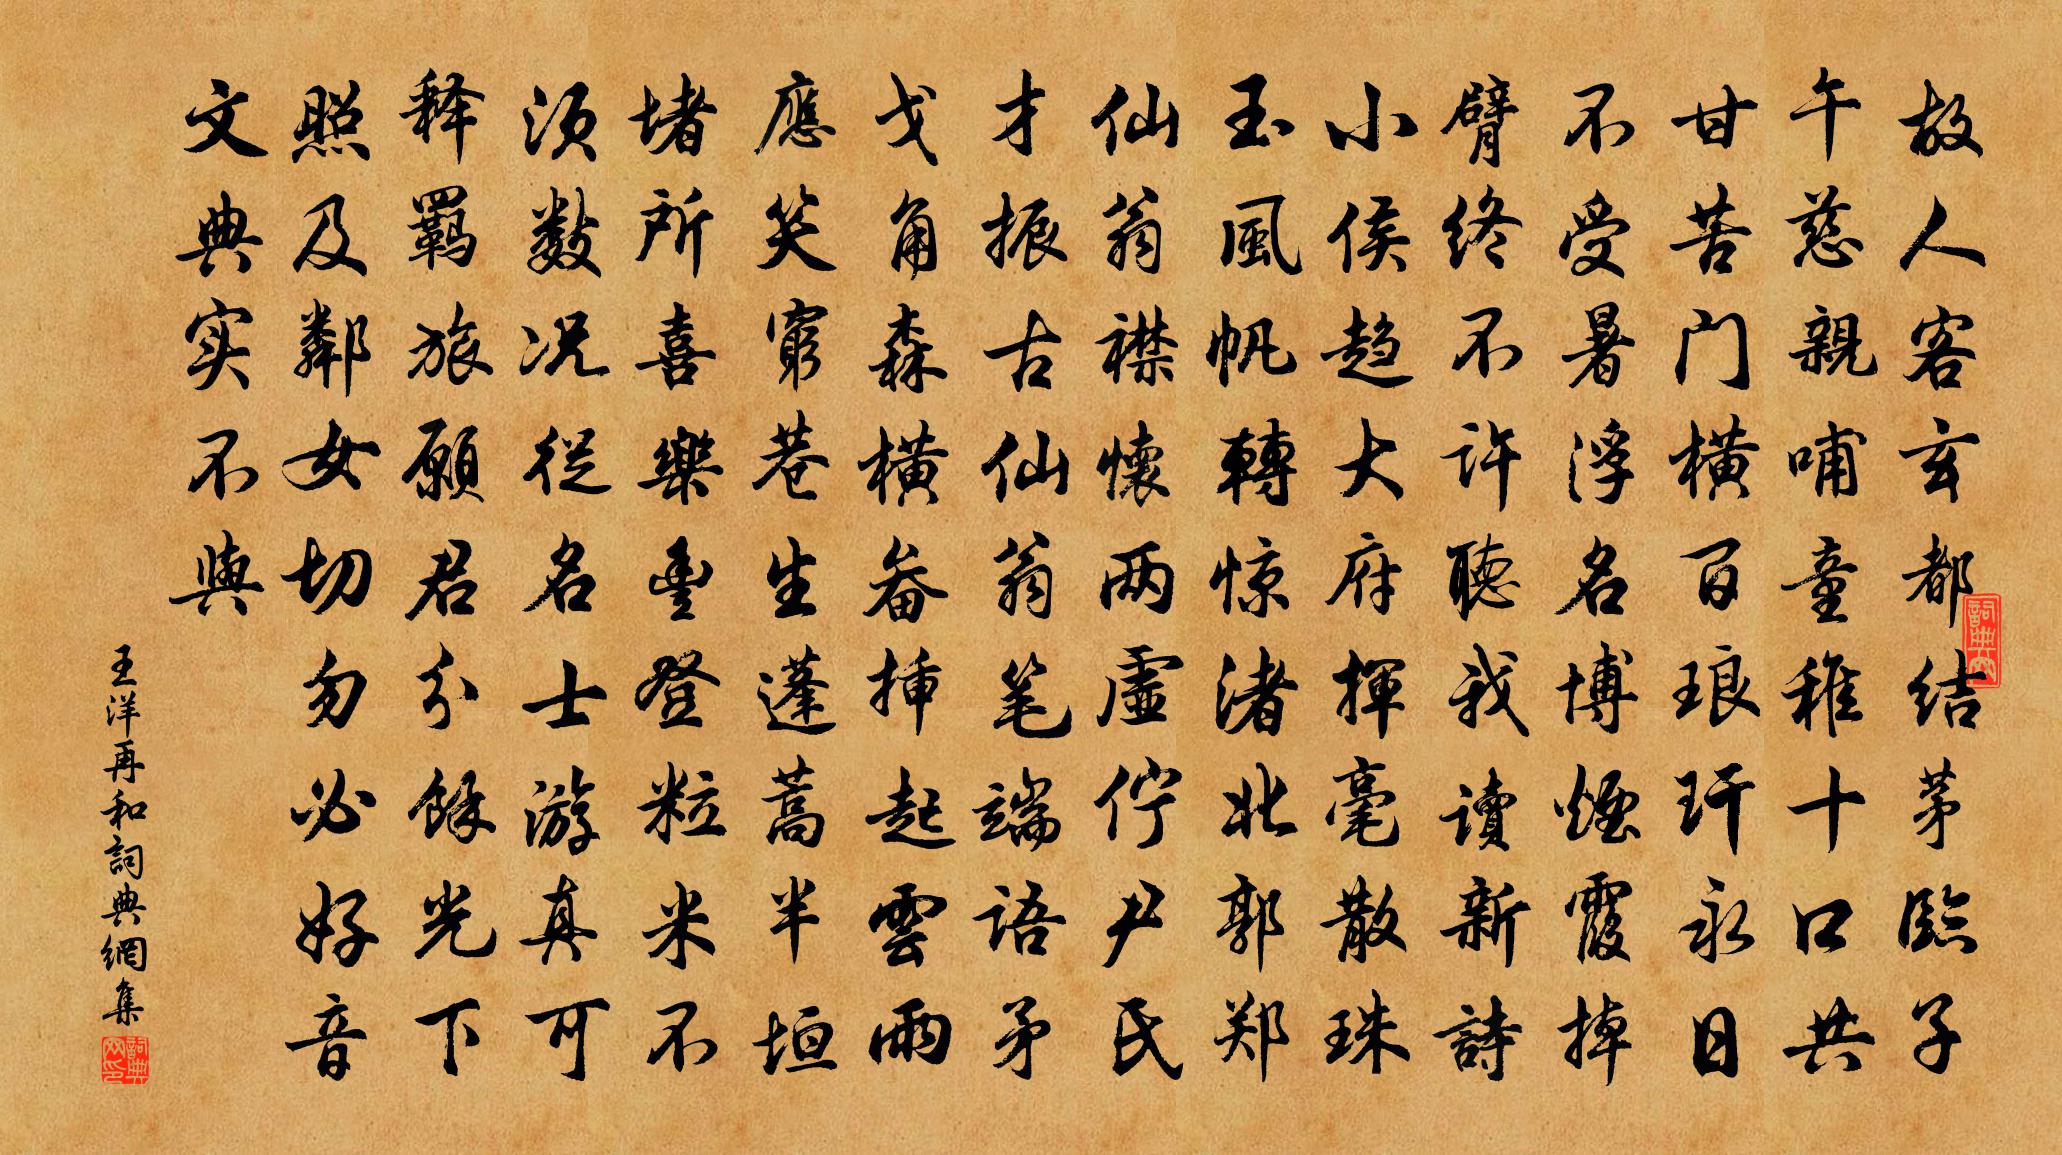 故人客玄都结茅臨子
午慈親哺童稚十口共
甘苦门横百琅玕永日
不受暑浮名博煙霞掉
臂终不许聴我讀新詩
小侯趋大府揮毫散珠
玉風帆轉惊渚北郭郑
仙翁襟懷两虚佇尹氏
才振古仙翁笔端语矛
戈角森横畚挿起雲雨
應笑窮巷生蓬蒿半垣
堵所喜樂豊登粒米不
须數况從名士游真可
释羁旅願君分餘光下
照及鄰女切勿必好音
文典实不與
王洋再和詞典網集
詞典网
詞典网印